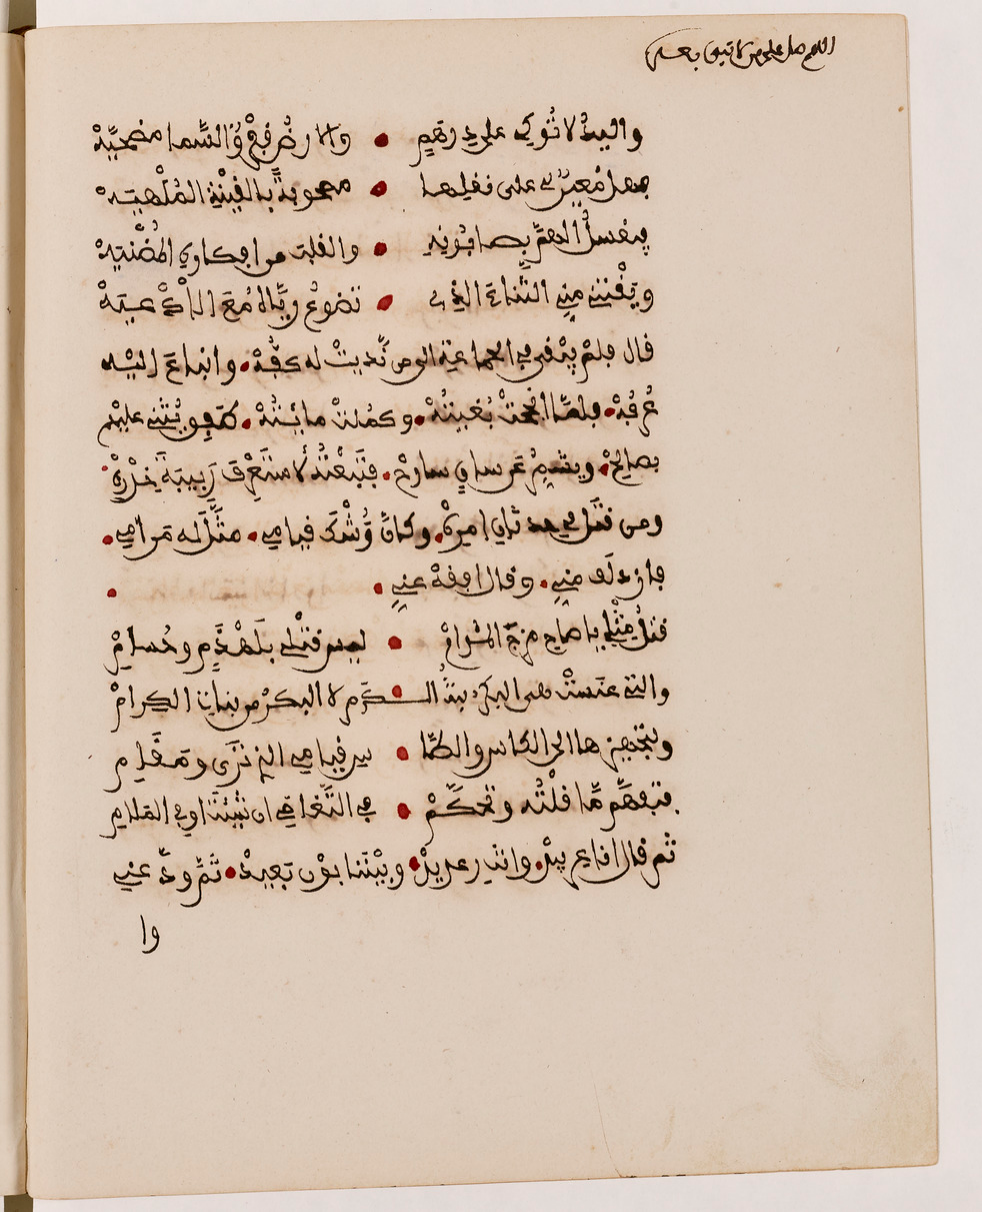 اللهم صل على من لا نبي بعده
واليدُ لا تُوكي على درهم • والارض قفرٌ والسَّما مصحيَّهْ
فهل مُعينٌ لي على نقلها • مصحوبةً بالقينة المُلْهيه
فيغسلُ الهمَّ بصابونه • والقلب من افكاري المُضْنيه
ويقْتني مني الثناءَ الذي • تضوعُ ريَّاه مَعَ الادعيهْ
قال فلمْ يبْقى في الجماعة الى من نَّديتْ له كفُّهْ • وانباعَ اليْه
عُرفُهْ • فلمَّا انجحتْ بُغيتُهْ • وكمُلتْ مائيتُهْ • طفِق يُثني عليْهم
بصالحْ • ويشمِّرُ عَن ساقٍ سارحْ • فتَبعْتُهُ لأستَعْرفَ رَبيبَةَ خدْرهْ •
ومن قتَل في حدثان امرهْ • وكانَّ وَشْكَ قيامي • مثَّلَ له مَرامي •
فازدلَف مني • وقال افقهْ عني • •
قتلُ مثْلي يا صاح مزجُ المُدامْ • ليس قتْلي بلَهْذَمٍ وحُسامْ
والتي عنَستْ هي البكرُ بنتُ الكرم لا البكرُ من بنات الكرامْ
ولتجْهيزها الى الكاس والطَّا • س قيامي الذي تَرَى ومَقَام
فتفهَّم مَّا قلْتُه وتحكَّمْ • في التَّغاضي ان شئتَ او في الملام
ثم قال انا عربيدْ • وانت رعديدْ • وبيْننا بوْن بَعيدْ • ثمَّ ودَّعني
وا